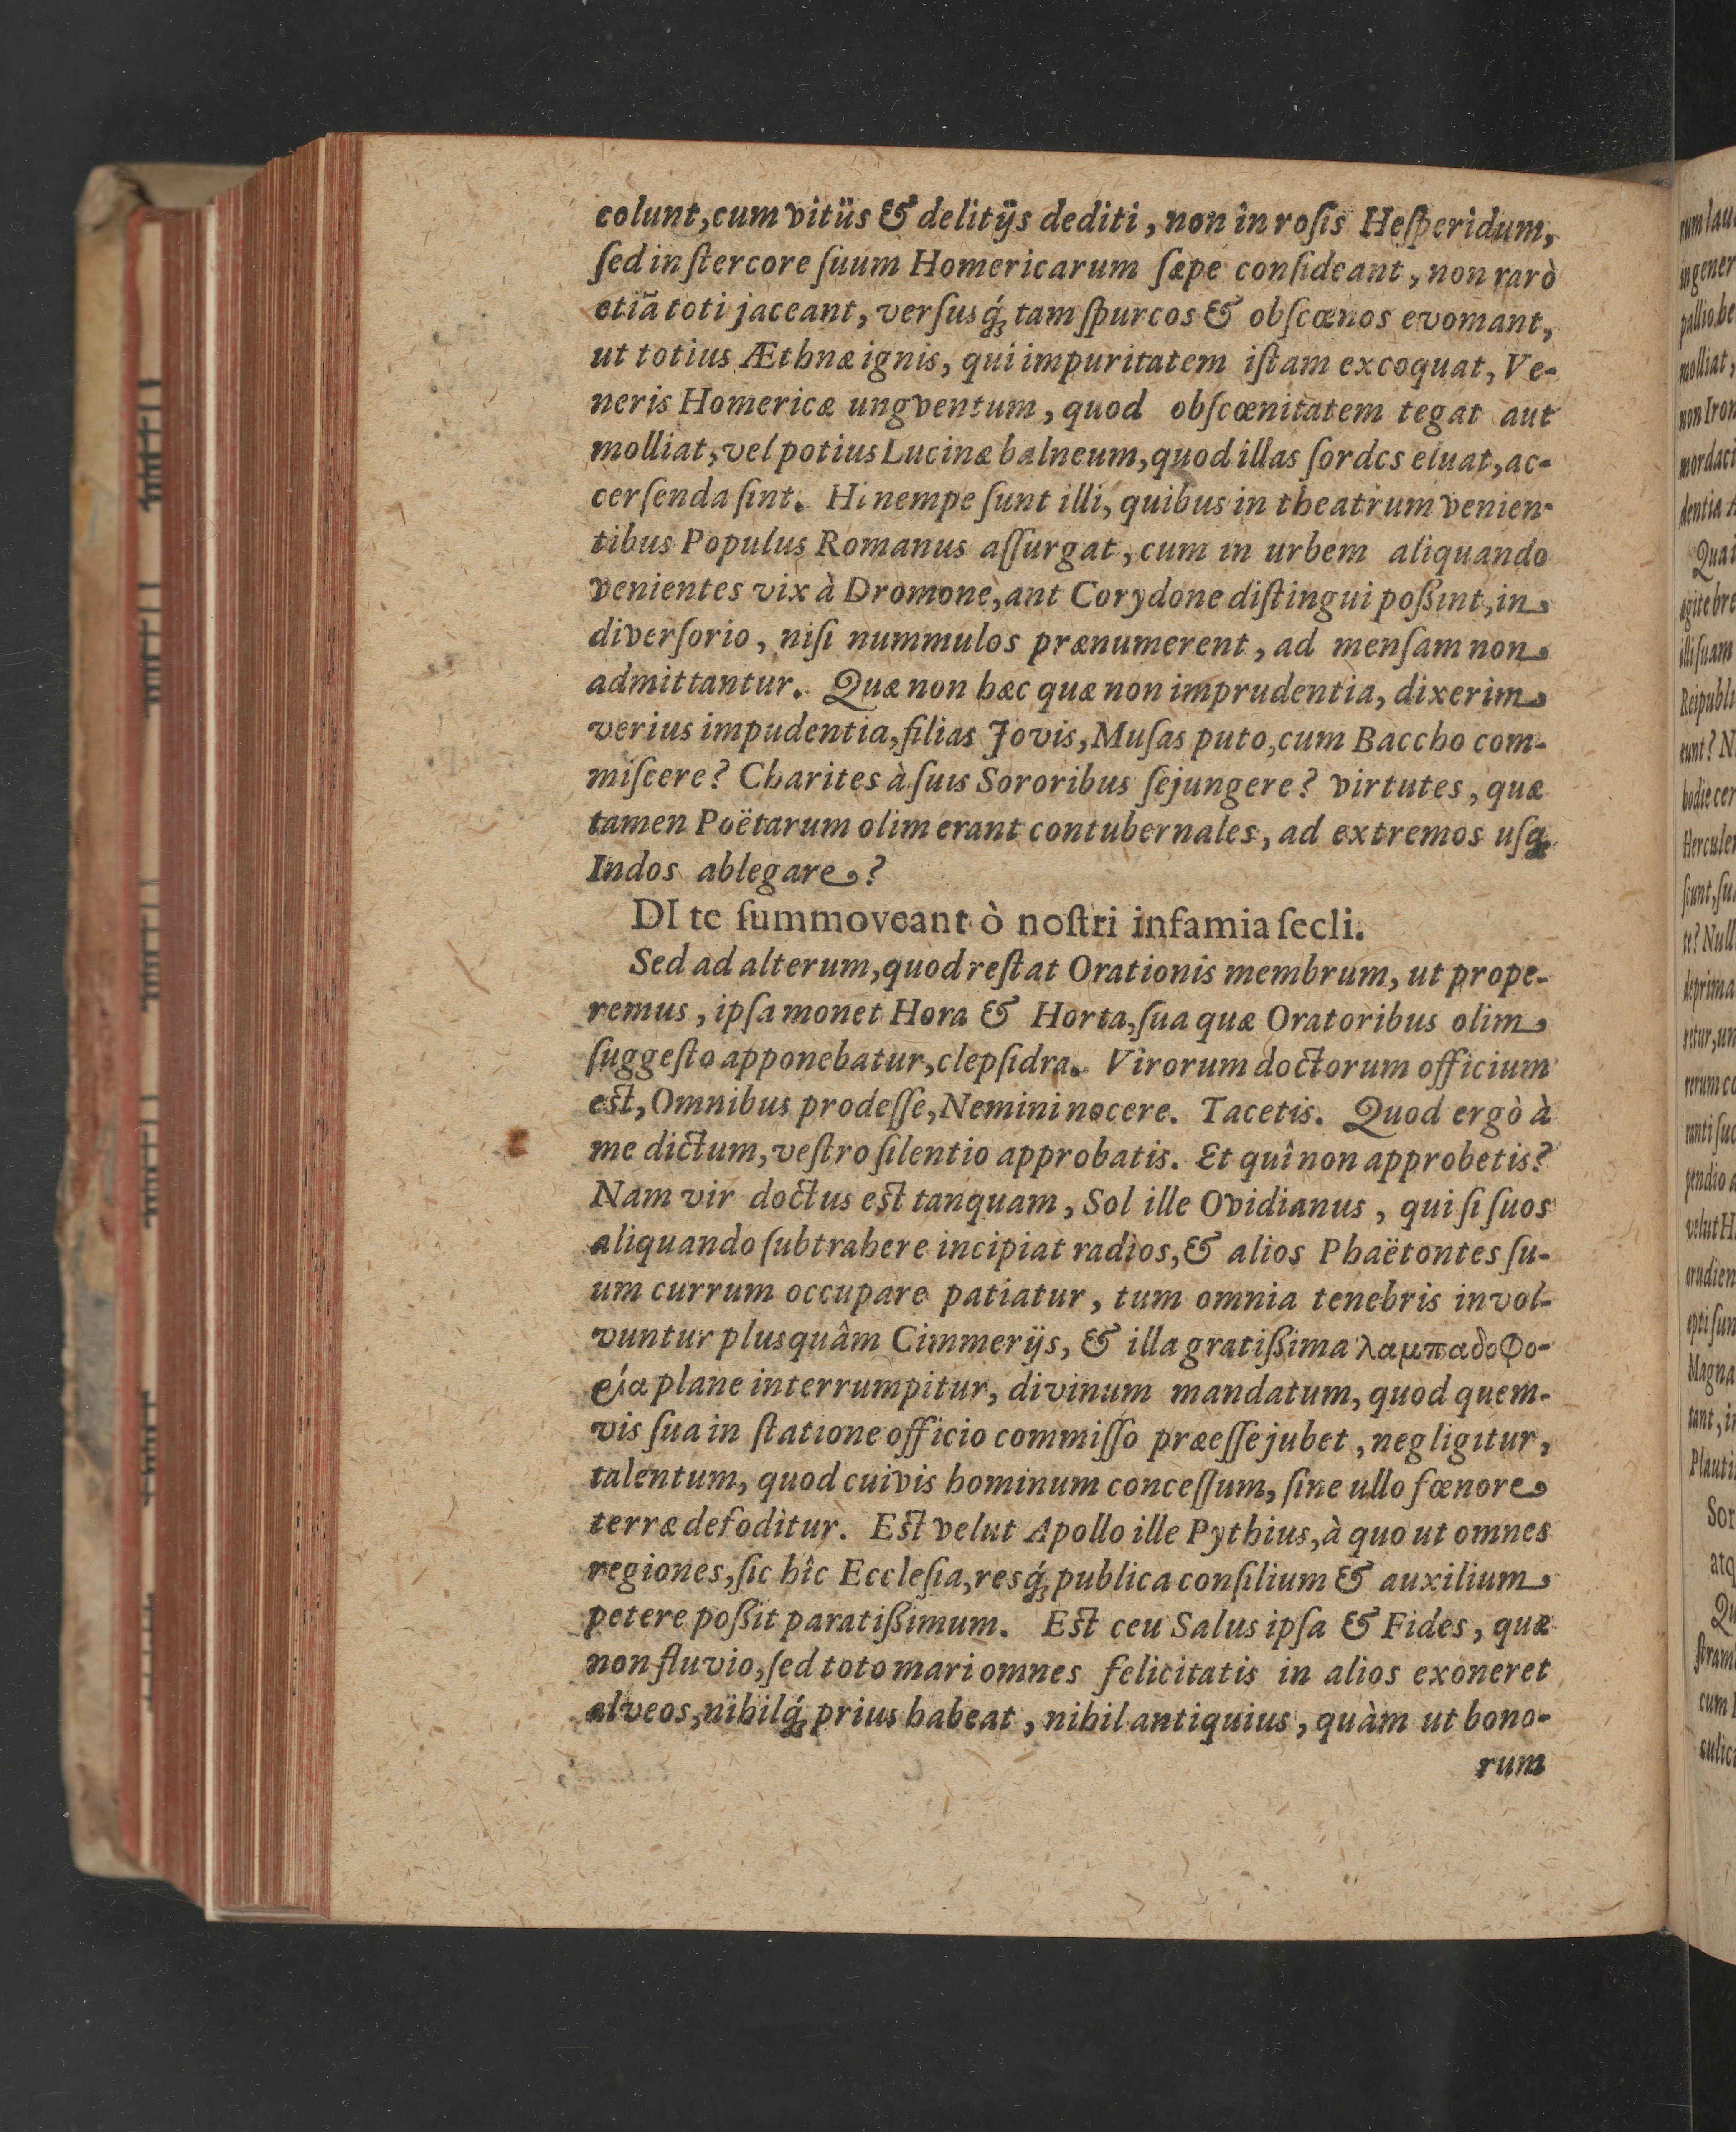 colunt, cum vitiis & delitijs dediti, non in rosis Hesperidum,
sed in stercore suum Homericarum sæpe consideant, non rarò
etiã toti jaceant, versusq́; tam spurcos & obscœnos evomant,
ut totius Æthnæ ignis, qui impuritatem istam excoquat, Ve-
neris Homericæ ungventum, quod obscœnitatem tegat aut
molliat, vel potius Lucinæ balneum, quod illas sordes eluat, ac-
cersenda sint. Hi nempe sunt illi, quibus in theatrum venien-
tibus Populus Romanus assurgat, cum in urbem aliquando
venientes vix à Dromone, ant Corydone distingui possint, in
diversorio, nisi nummulos prænumerent, ad mensam non
admittantur. Quæ non hæc quæ non imprudentia, dixerim
verius impudentia, filias Jovis, Musas puto, cum Baccho com-
miscere? Charites à suis Sororibus sejungere? virtutes, quæ
tamen Poëtarum olim erant contubernales, ad extremos usq;
Indos ablegare?
DI te summoveant ò nostri infamia secli.
Sed ad alterum, quod restat Orationis membrum, ut prope-
remus, ipsa monet Hora & Horta, sua quæ Oratoribus olim
suggesto apponebatur, clepsidra. Virorum doctorum officium
est, Omnibus prodesse, Nemini nocere. Tacetis. Quod ergò à
me dictum, vestro silentio approbatis. Et quî non approbetis?
Nam vir doctus est tanquam, Sol ille Ovidianus, qui si suos
aliquando subtrahere incipiat radios, & alios Phaëtontes su-
um currum occupare patiatur, tum omnia tenebris invol-
vuntur plusquâm Cimmerijs, & illa gratissima λαμπαδοφο-
ρία plane interrumpitur, divinum mandatum, quod quem-
vis sua in statione officio commisso præesse jubet, negligitur,
talentum, quod cuivis hominum concessum, sine ullo fœnore
terræ defoditur. Est velut Apollo ille Pythius, à quo ut omnes
regiones, sic hîc Ecclesia, resq́; publica consilium & auxilium
petere possit paratissimum. Est ceu Salus ipsa & Fides, quæ
non fluvio, sed toto mari omnes felicitatis in alios exoneret
alveos, nihilq́; prius habeat, nihil antiquius, quàm ut bono-
rum